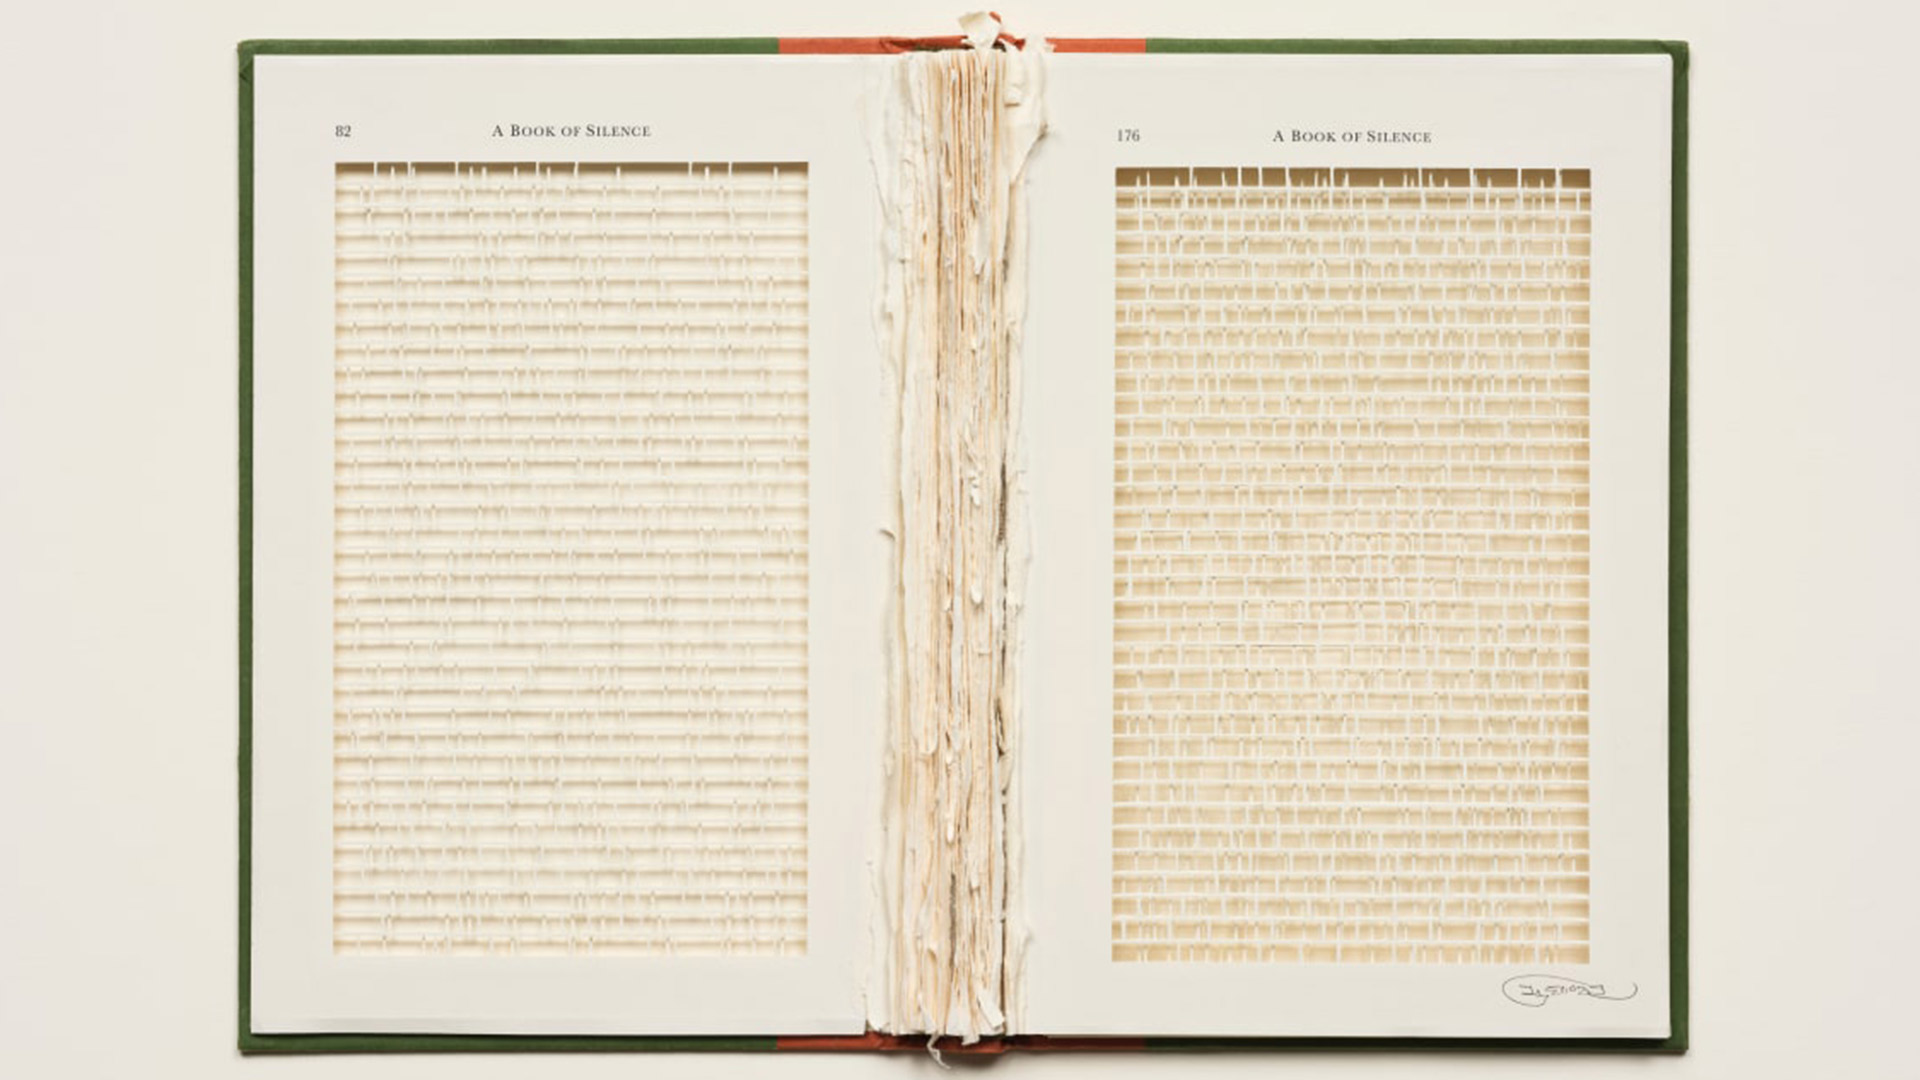 82
A BOOK OF SILENCE
176
A BOOK OF SILENCE